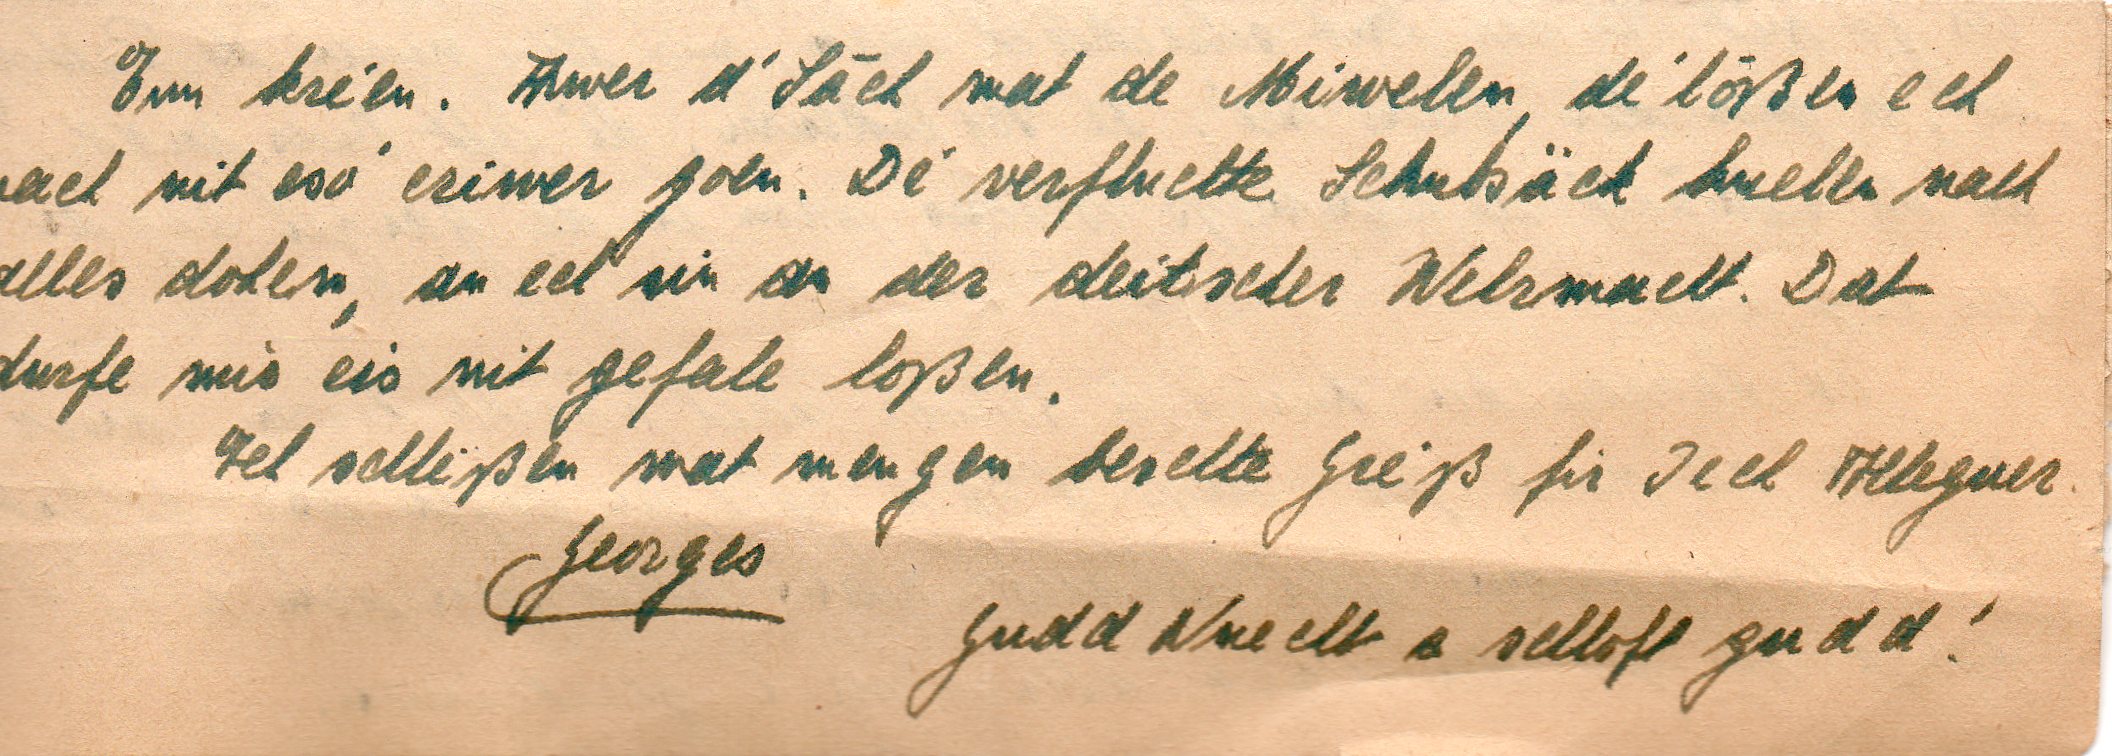 Enn kréien. Awer d' Sâch mat de Miwelen, dé lôßen ech
nach nit esó eriwer goen. Dé verfluchte Schubsäck huelen nach
alles doheem, an ech sin an der deitscher Wehrmacht. Dat
durfe mir eis nit gefale loßen.
Ech schléißen mat mengen beschte Gréiß fir Iech All
Georges
Gudd Nuecht a schloft gudd!